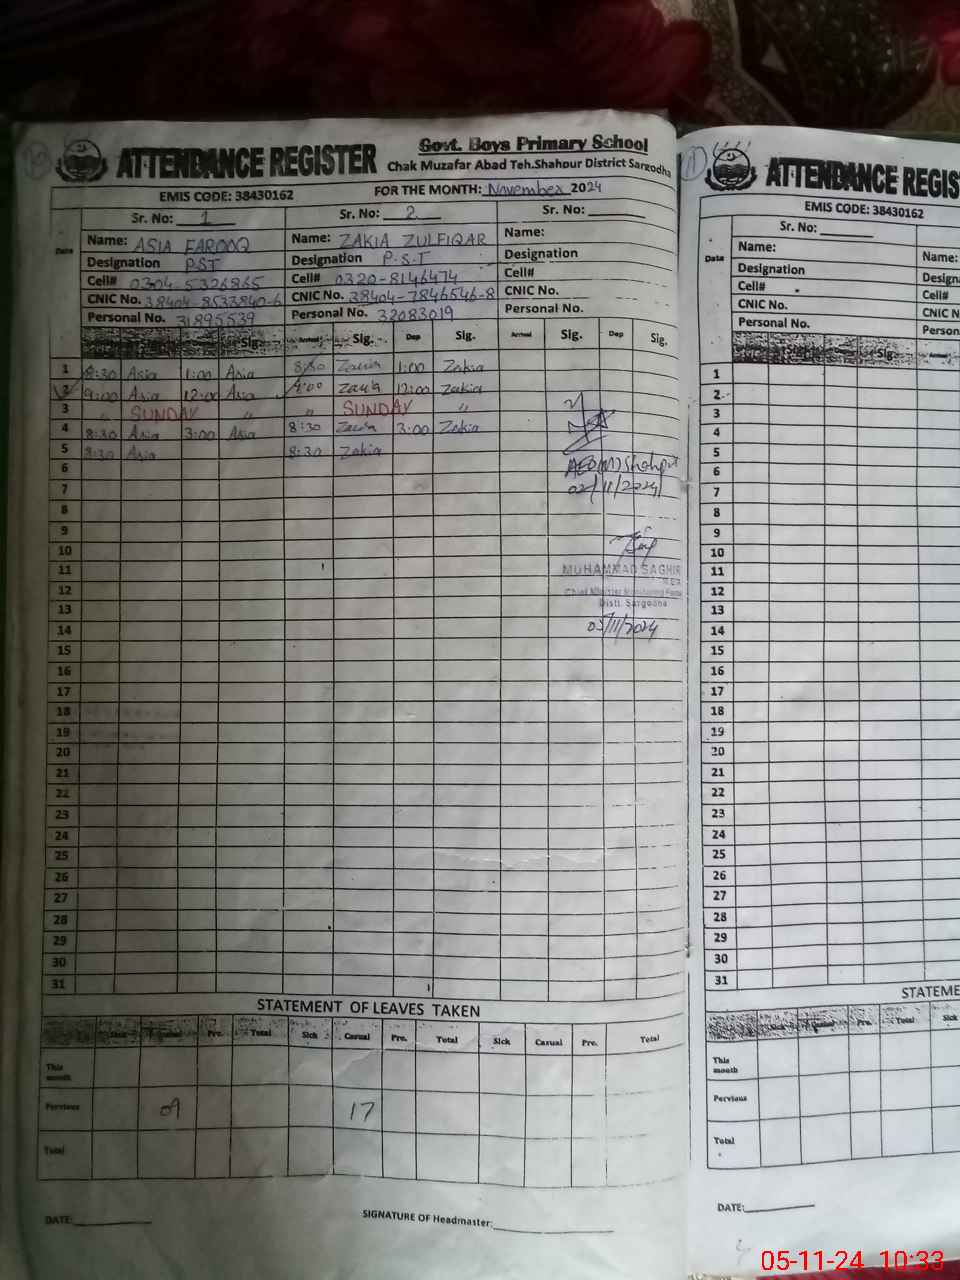 ATTENDANCE REGISTER
Govt. Boys Primary School
Chak Muzafar Abad Teh.Shahpur District Sargodha
EMIS CODE: 38430162 FOR THE MONTH: November 2024
Sr. No: 1 Sr. No: 2 Sr. No:
Date
Name: ASIA FAROOQ Name: ZAKIA ZULFIQAR Name:
Designation PST Designation P.S.T Designation
Cell# 0304-5326865 Cell# 0320-8146474 Cell#
CNIC No. 38404-8533840-6 CNIC No. 38404-7846546-8 CNIC No.
Personal No. 31895539 Personal No. 32083019 Personal No.
Sig. Arrival Sig. Dep Sig. Arrival Sig. Dep Sig.
1 8:30 Asia 1:00 Asia 8:30 Zakia 1:00 Zakia
2 9:00 Asia 12:00 Asia 9:00 Zakia 12:00 Zakia
3 " SUNDAY " " SUNDAY "
4 8:30 Asia 3:00 Asia 8:30 Zakia 3:00 Zakia
5 8:30 Asia 8:30 Zakia
AEO(M) Shahpur
02/11/2024
6
7
8
9
10
11
12
13
14
15
16
17
18
19
20
21
22
23
24
25
26
27
28
29
30
31
MUHAMMAD SAGHIR
Chief Minister Monitoring Force
Distt. Sargodha
05/11/2024
STATEMENT OF LEAVES TAKEN
Sick Casual Pre. Total Sick Casual Pre. Total Sick Casual Pre. Total
This month
Pervious 09 17
Total
DATE: SIGNATURE OF Headmaster:
ATTENDANCE REGIS
EMIS CODE: 38430162
Sr. No:
Date
Name: Name:
Designation Design
Cell# Cell#
CNIC No. CNIC N
Personal No. Person
Sig. Arrival
1
2
3
4
5
6
7
8
9
10
11
12
13
14
15
16
17
18
19
20
21
22
23
24
25
26
27
28
29
30
31
STATEME
Sick Casual Pre. Total Sick
This month
Pervious
Total
DATE:
05-11-24 10:33